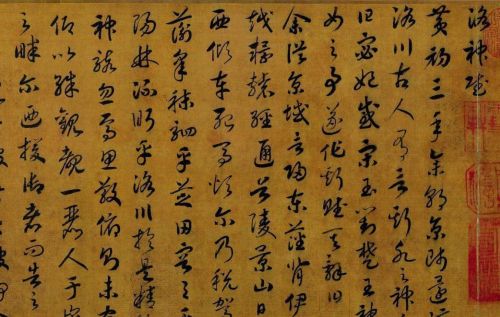 洛神賦
黄初三年余朝京師還
洛川古人有言斯水之神
曰宓妃感宋玉對楚王神
女之事遂作斯賦其辭曰
余從京域言歸東藩背伊
越轘轅經通谷陵景山日
西傾車殆馬煩爾乃稅駕
蘅皋秣駟乎芝田容與
陽林流眄乎洛川於是精
神駭忽焉思散俯則未
仰以殊觀覩一麗人于
之畔爾迺援御者而告之